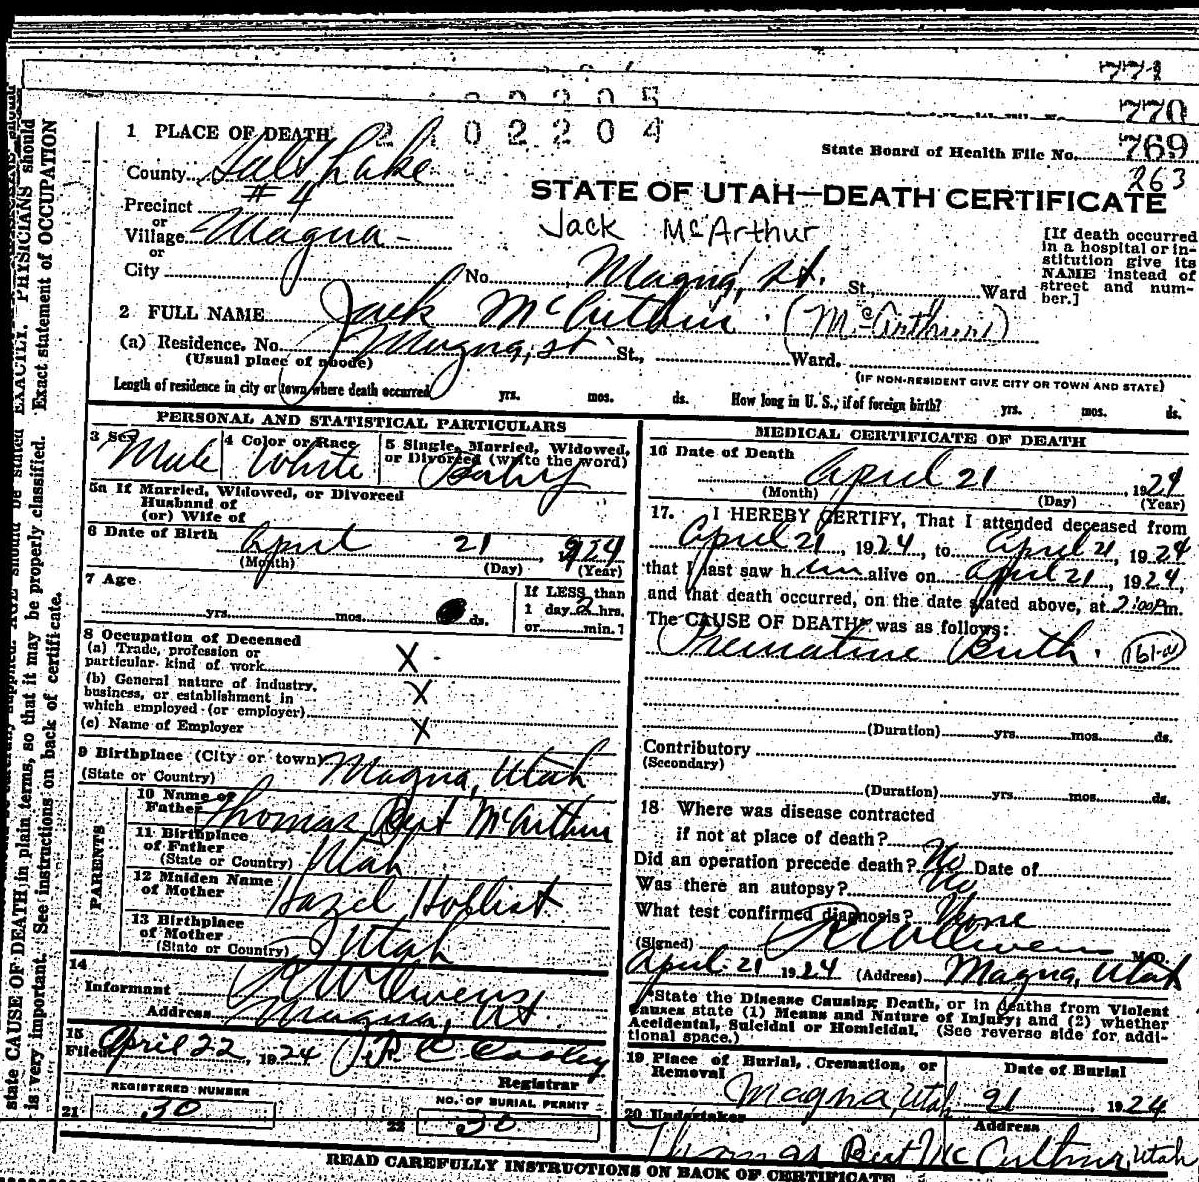 771
770
2102204
State Board of Health File No. 769
263
1 PLACE OF DEATH
County Salt Lake
STATE OF UTAH—DEATH CERTIFICATE
Precinct #4
or
Village Magna
or
City No. Magna, Ut. St., Ward
Jack McArthur
[If death occurred
in a hospital or in-
stitution give its
NAME instead of
street and num-
ber.]
2 FULL NAME Jack McArthur (McArthur)
(a) Residence. No. Magna, St., Ward.
(Usual place of abode)
(IF NON-RESIDENT GIVE CITY OR TOWN AND STATE)
Length of residence in city or town where death occurred yrs. mos. ds. How long in U. S., if of foreign birth? yrs. mos. ds.
PERSONAL AND STATISTICAL PARTICULARS
3 Sex Male
4 Color or Race White
5 Single, Married, Widowed,
or Divorced (write the word) Baby
5a If Married, Widowed, or Divorced
Husband of
(or) Wife of
6 Date of Birth April 21 1924
(Month) (Day) (Year)
7 Age
yrs. mos. ds.
If LESS than
1 day 2 hrs.
or min.?
8 Occupation of Deceased
(a) Trade, profession or
particular kind of work X
(b) General nature of industry,
business, or establishment in
which employed (or employer) X
(c) Name of Employer X
9 Birthplace (City or town) Magna, Utah
(State or Country)
PARENTS
10 Name of
Father Thomas Bert McArthur
11 Birthplace
of Father
(State or Country) Utah
12 Maiden Name
of Mother Hazel
13 Birthplace
of Mother
(State or Country) Utah
14
Informant R W Owens
Address Magna, Ut
15
Filed April 22, 1924
Registrar
REGISTERED NUMBER
21 30
NO. OF BURIAL PERMIT
22 30
MEDICAL CERTIFICATE OF DEATH
16 Date of Death
April 21 1924
(Month) (Day) (Year)
17. I HEREBY CERTIFY, That I attended deceased from
April 21, 1924, to April 21, 1924
that I last saw him alive on April 21, 1924,
and that death occurred, on the date stated above, at 2:00 P.m.
The CAUSE OF DEATH* was as follows:
Premature Birth.
(Duration) yrs. mos. ds.
Contributory
(Secondary)
(Duration) yrs. mos. ds.
18 Where was disease contracted
if not at place of death?
Did an operation precede death? No Date of
Was there an autopsy? No
What test confirmed diagnosis? None
(Signed) R W Owens M.D.
April 21 1924 (Address) Magna, Utah
*State the Disease Causing Death, or in deaths from Violent
Causes state (1) Means and Nature of Injury; and (2) whether
Accidental, Suicidal or Homicidal. (See reverse side for addi-
tional space.)
19 Place of Burial, Cremation, or
Removal Magna, Utah
Date of Burial
21 1924
20 Undertaker
Thomas Bert McArthur
Address
Utah
READ CAREFULLY INSTRUCTIONS ON BACK OF CERTIFICATE
EXACTLY. PHYSICIANS should
state CAUSE OF DEATH in plain terms, so that it may be properly classified. Exact statement of OCCUPATION
is very important. See instructions on back of certificate.